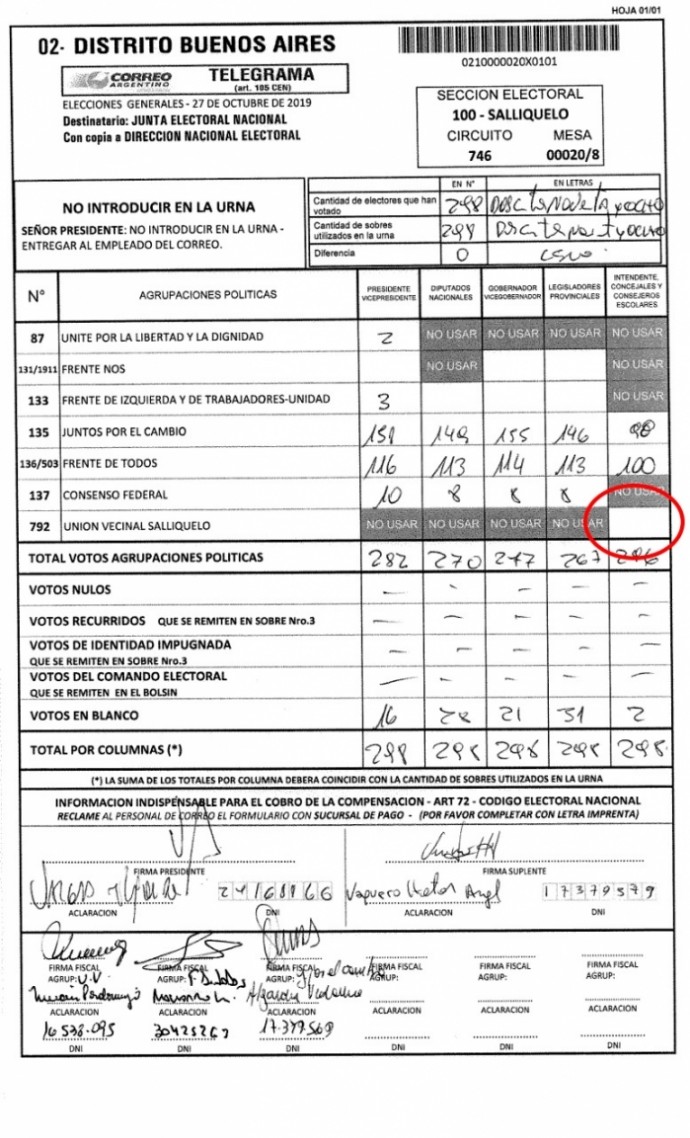 HOJA 01/01
02- DISTRITO BUENOS AIRES
0210000020X0101
CORREO ARGENTINO
TELEGRAMA
(art. 105 CEN)
ELECCIONES GENERALES - 27 DE OCTUBRE DE 2019
Destinatario: JUNTA ELECTORAL NACIONAL
Con copia a DIRECCION NACIONAL ELECTORAL
SECCION ELECTORAL
100 - SALLIQUELO
CIRCUITO MESA
746 00020/8
NO INTRODUCIR EN LA URNA
SEÑOR PRESIDENTE: NO INTRODUCIR EN LA URNA -
ENTREGAR AL EMPLEADO DEL CORREO.
EN N° EN LETRAS
Cantidad de electores que han votado 298
Cantidad de sobres utilizados en la urna 298
Diferencia 0
N° AGRUPACIONES POLITICAS PRESIDENTE VICEPRESIDENTE DIPUTADOS NACIONALES GOBERNADOR VICEGOBERNADOR LEGISLADORES PROVINCIALES INTENDENTE, CONCEJALES Y CONSEJEROS ESCOLARES
87 UNITE POR LA LIBERTAD Y LA DIGNIDAD 2 NO USAR NO USAR NO USAR NO USAR
131/1911 FRENTE NOS NO USAR NO USAR
133 FRENTE DE IZQUIERDA Y DE TRABAJADORES-UNIDAD 3 NO USAR
135 JUNTOS POR EL CAMBIO 151 149 155 146
136/503 FRENTE DE TODOS 116 113 114 113 100
137 CONSENSO FEDERAL 10 8 8 8 NO USAR
792 UNION VECINAL SALLIQUELO NO USAR NO USAR NO USAR NO USAR
TOTAL VOTOS AGRUPACIONES POLITICAS 282 270 277 267 296
VOTOS NULOS - - - - -
VOTOS RECURRIDOS QUE SE REMITEN EN SOBRE Nro.3 - - - - -
VOTOS DE IDENTIDAD IMPUGNADA
QUE SE REMITEN EN SOBRE Nro.3 - - - - -
VOTOS DEL COMANDO ELECTORAL
QUE SE REMITEN EN EL BOLSIN - - - - -
VOTOS EN BLANCO 16 28 21 31 2
TOTAL POR COLUMNAS (*) 298 298 298 298 298
(*) LA SUMA DE LOS TOTALES POR COLUMNA DEBERA COINCIDIR CON LA CANTIDAD DE SOBRES UTILIZADOS EN LA URNA
INFORMACION INDISPENSABLE PARA EL COBRO DE LA COMPENSACION - ART 72 - CODIGO ELECTORAL NACIONAL
RECLAME AL PERSONAL DE CORREO EL FORMULARIO CON SUCURSAL DE PAGO - (POR FAVOR COMPLETAR CON LETRA IMPRENTA)
FIRMA PRESIDENTE FIRMA SUPLENTE
24168166 Vaquero Hector Angel 17379579
ACLARACION DNI ACLARACION DNI
FIRMA FISCAL FIRMA FISCAL FIRMA FISCAL FIRMA FISCAL FIRMA FISCAL FIRMA FISCAL
AGRUP: U.V. AGRUP: F. Todos AGRUP: AGRUP: AGRUP: AGRUP:
ACLARACION ACLARACION ACLARACION ACLARACION ACLARACION ACLARACION
16538.095 30425267 17.379.569
DNI DNI DNI DNI DNI DNI